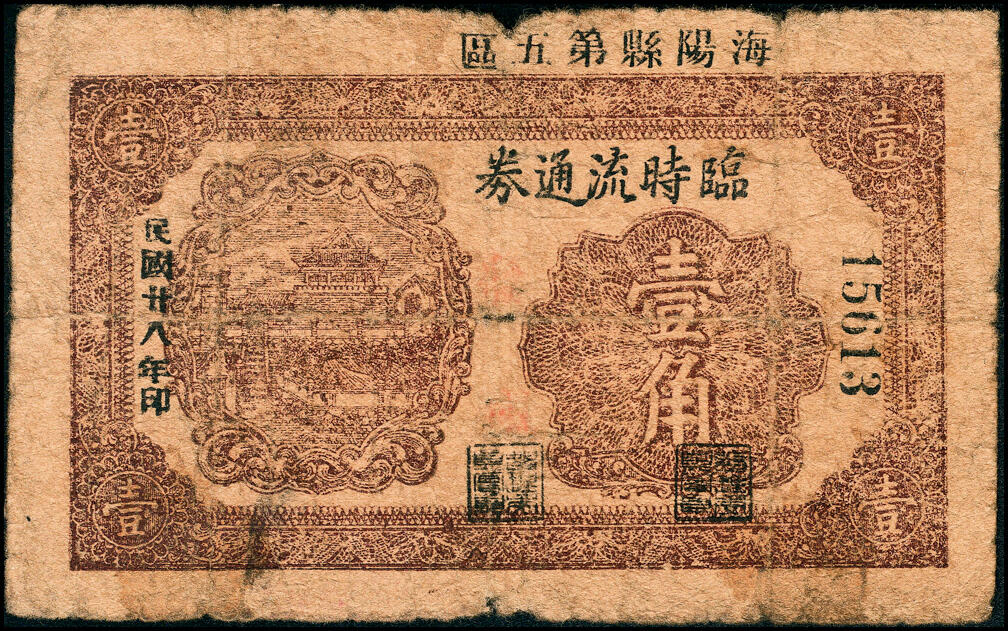 海陽縣第五區
臨時流通券
壹
壹
壹角
15613
民國廿八年印
壹
壹